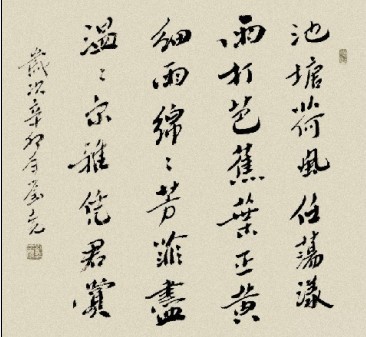 池塘荷風任蕩漾
雨打芭蕉葉正黃
細雨綿綿芳菲盡
溫溫宗雅凭君賞
歲次辛卯年